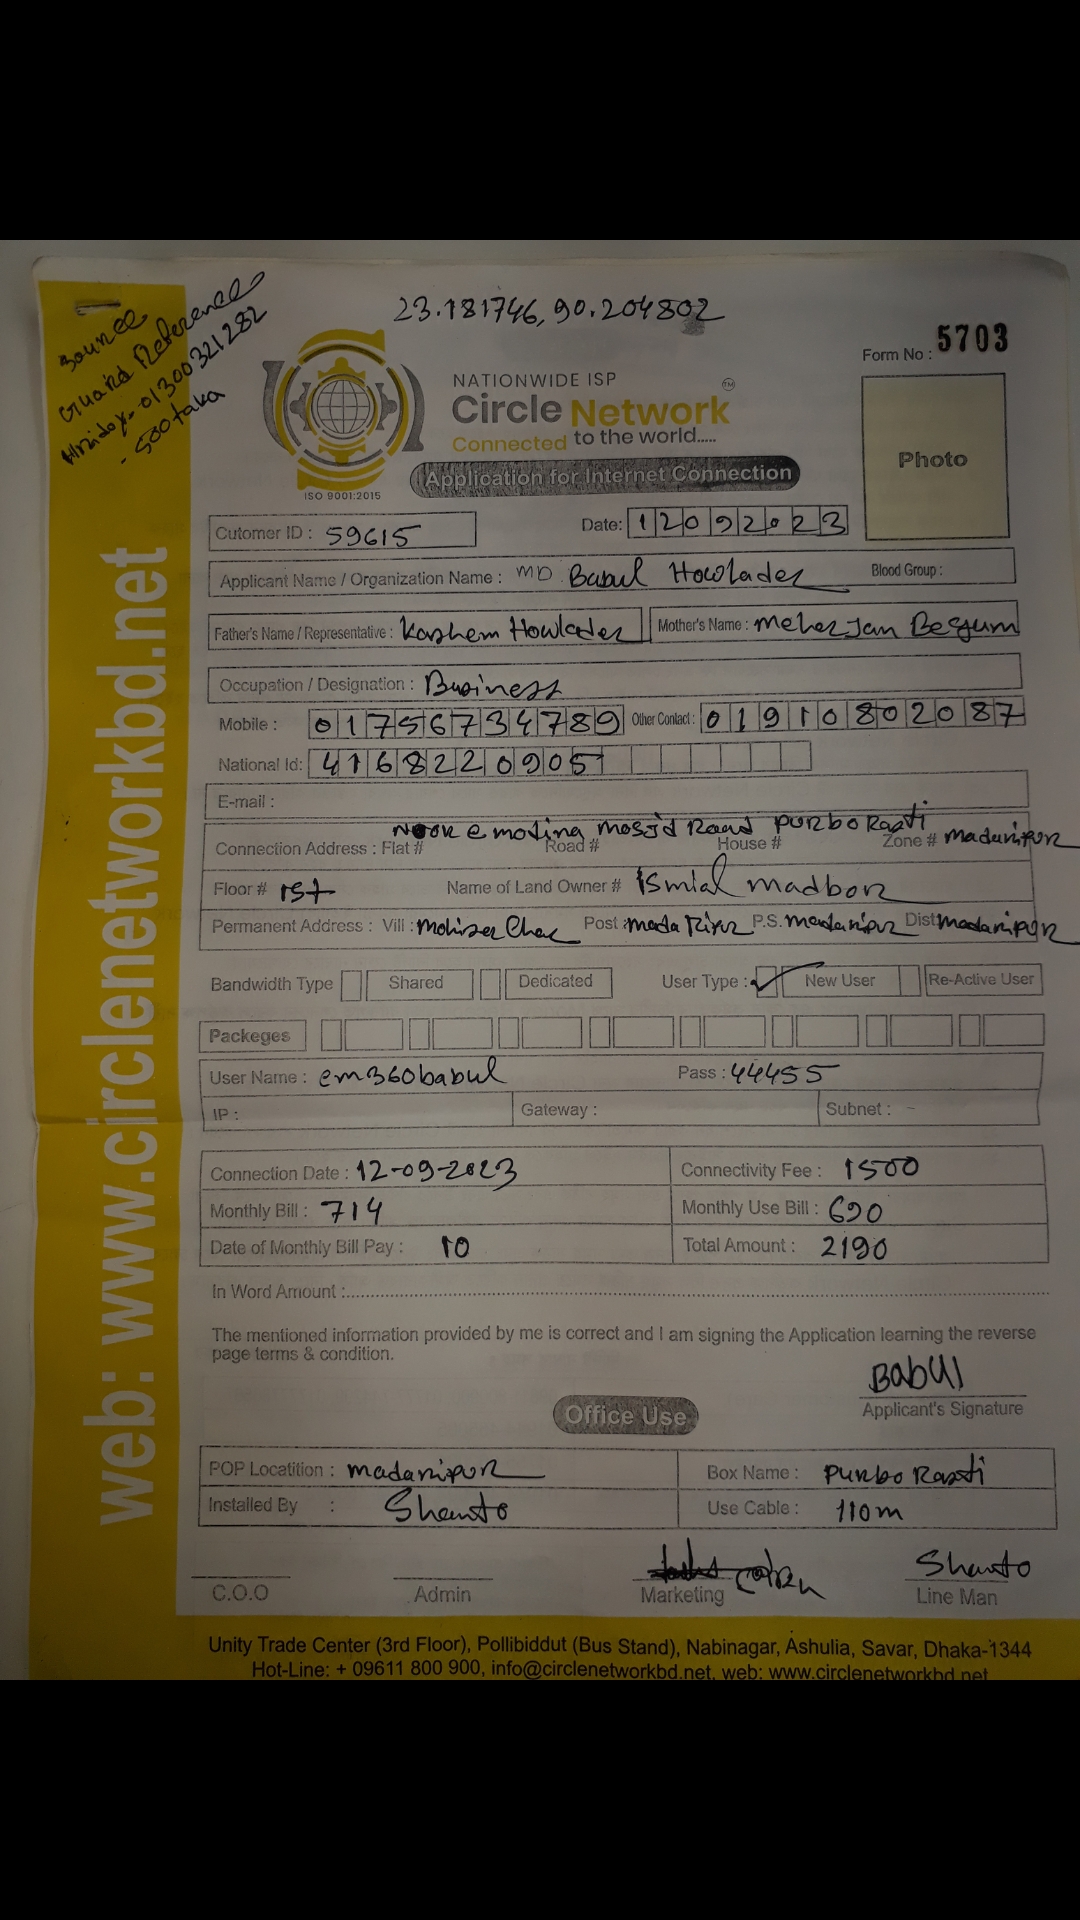 23.181746, 90.204802
Source
Guard Reference
Hridoy-01300321282
- 500 taka
Form No : 5703
NATIONWIDE ISP
TM
Circle Network
Connected to the world.....
Application for Internet Connection
ISO 9001:2015
Photo
Cutomer ID : 59615
Date: 12092023
Applicant Name / Organization Name : MD Babul Howlader Blood Group :
Father's Name / Representative : Kashem Howlader Mother's Name : Meher Jan Begum
Occupation / Designation : Business
Mobile : 01756734789 Other Contact : 01910802087
National Id: 4168220905
E-mail :
Noor e Mosjid Road Purbo Rasti
Connection Address : Flat # Road # House # Zone # madaripur
Floor # 1st Name of Land Owner # Ismial madbor
Permanent Address : Vill : Post : P.S. madaripur Dist madaripur
Bandwidth Type Shared Dedicated User Type : New User Re-Active User
Packeges
User Name : em360babul Pass : 44455
IP : Gateway : Subnet : -
Connection Date : 12-09-2023 Connectivity Fee : 1500
Monthly Bill : 714 Monthly Use Bill : 690
Date of Monthly Bill Pay : 10 Total Amount : 2190
In Word Amount :
The mentioned information provided by me is correct and I am signing the Application learning the reverse
page terms & condition.
Babul
Applicant's Signature
Office Use
POP Locatition : madaripur Box Name : Purbo Rasti
Installed By : Shanto Use Cable : 110m
Shanto
C.O.O Admin Marketing Line Man
Unity Trade Center (3rd Floor), Pollibiddut (Bus Stand), Nabinagar, Ashulia, Savar, Dhaka-1344
Hot-Line: + 09611 800 900, info@circlenetworkbd.net, web: www.circlenetworkbd.net
web: www.circlenetworkbd.net